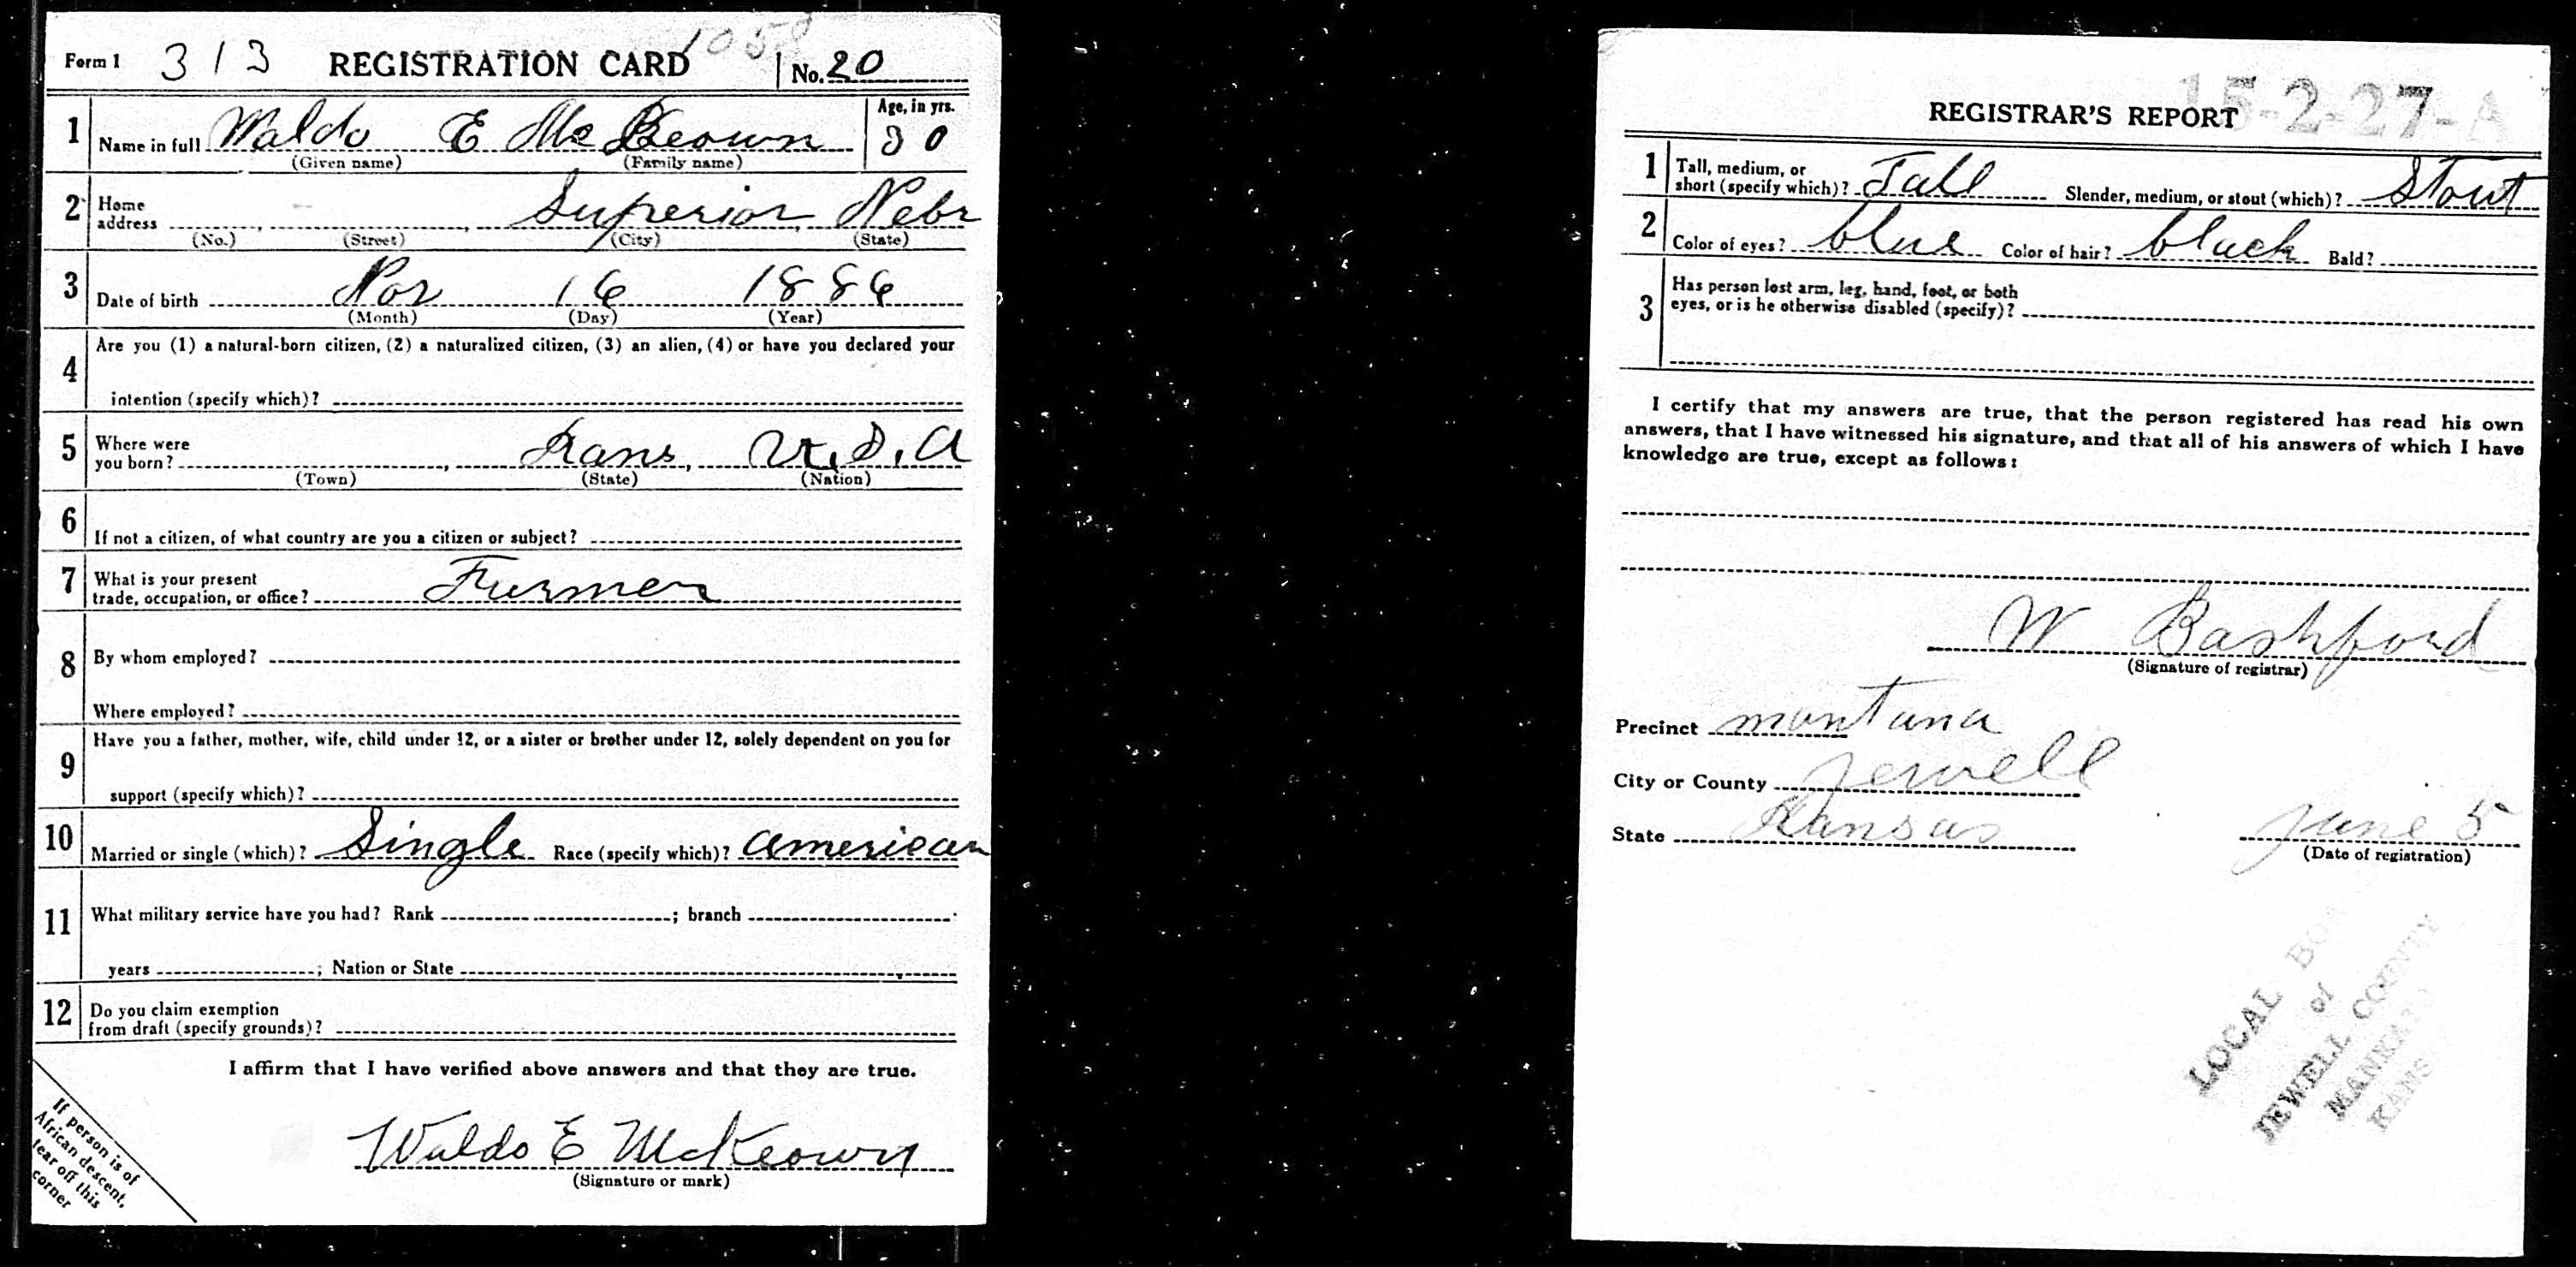 Form 1 313 REGISTRATION CARD 1058 No. 20
1 Name in full Waldo E McKeown Age, in yrs. 30
(Given name) (Family name)
2 Home address Superior, Nebr
(No.) (Street) (City) (State)
3 Date of birth Nov 16 1886
(Month) (Day) (Year)
4 Are you (1) a natural-born citizen, (2) a naturalized citizen, (3) an alien, (4) or have you declared your
intention (specify which)?
5 Where were you born? Kans, U.S.A
(Town) (State) (Nation)
6 If not a citizen, of what country are you a citizen or subject?
7 What is your present
trade, occupation, or office? Farmer
8 By whom employed?
Where employed?
9 Have you a father, mother, wife, child under 12, or a sister or brother under 12, solely dependent on you for
support (specify which)?
10 Married or single (which)? Single Race (specify which)? American
11 What military service have you had? Rank ; branch
years ; Nation or State
12 Do you claim exemption
from draft (specify grounds)?
I affirm that I have verified above answers and that they are true.
Waldo E McKeown
(Signature or mark)
If person is of
African descent,
tear off this
corner
15-2-27-A
REGISTRAR'S REPORT
1 Tall, medium, or
short (specify which)? Tall Slender, medium, or stout (which)? Stout
2 Color of eyes? blue Color of hair? black Bald?
3 Has person lost arm, leg, hand, foot, or both
eyes, or is he otherwise disabled (specify)?
I certify that my answers are true, that the person registered has read his own
answers, that I have witnessed his signature, and that all of his answers of which I have
knowledge are true, except as follows:
W Bashford
(Signature of registrar)
Precinct Montana
City or County Jewell
State Kansas June 5
(Date of registration)
LOCAL BO
of
JEWELL COUNTY
MANKA
KANS